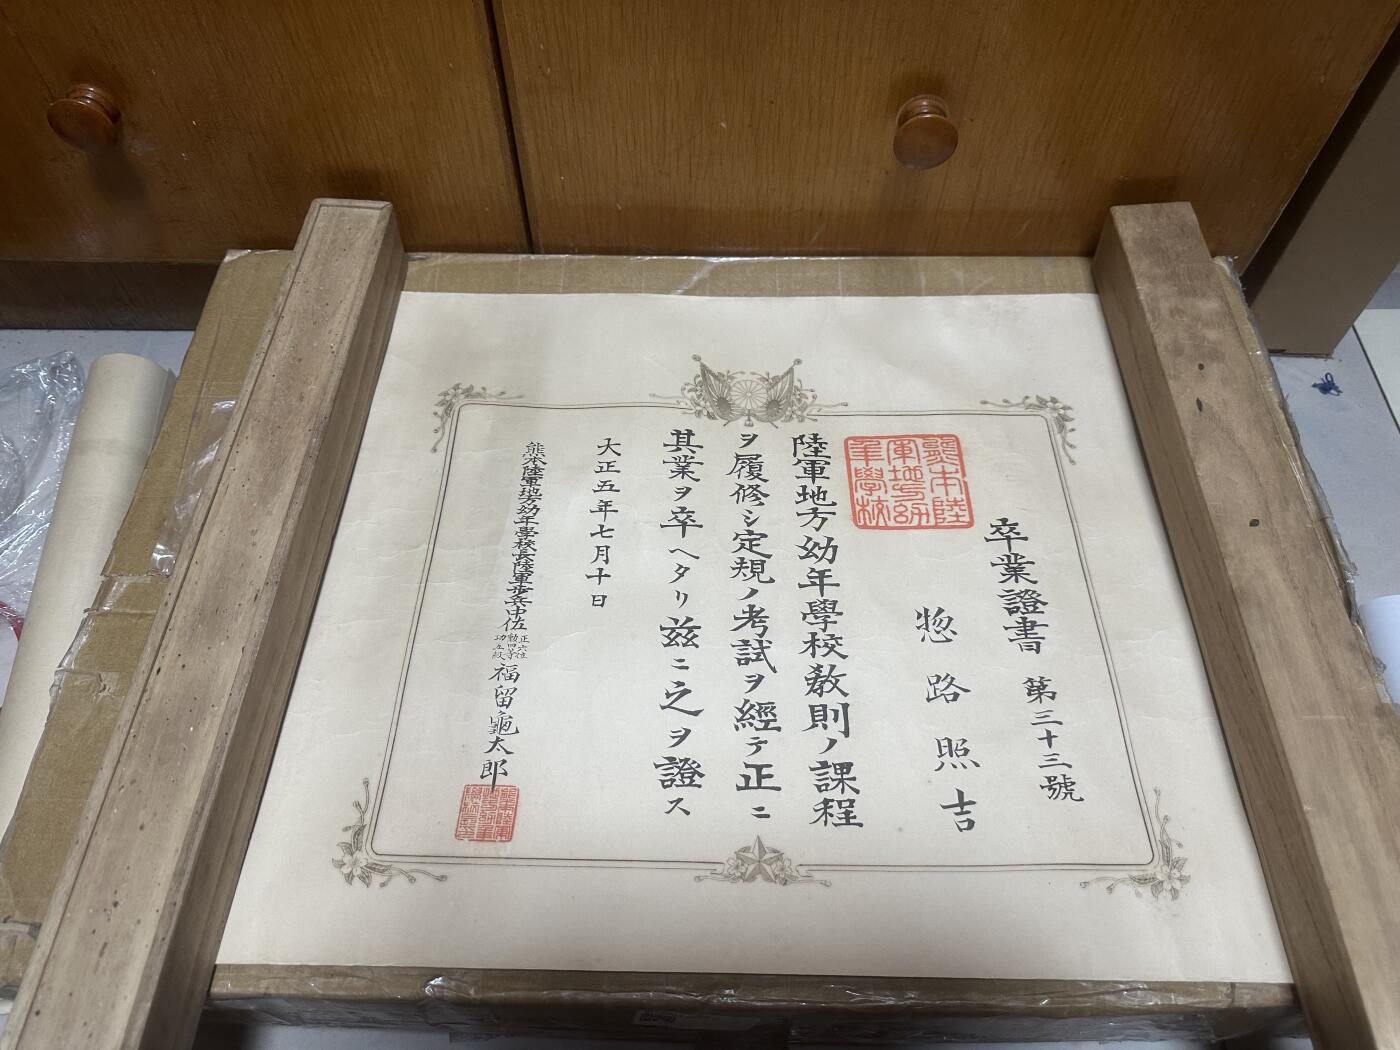 卒業證書 第三十三號
惣路照吉
熊本陸
軍地方幼
年學校
陸軍地方幼年學校教則ノ課程
ヲ履修シ定規ノ考試ヲ經テ正ニ
其業ヲ卒ヘタリ茲ニ之ヲ證ス
大正五年七月十日
熊本陸軍地方幼年學校長陸軍歩兵中佐 正六位 勲四等 功五級 福留龜太郎